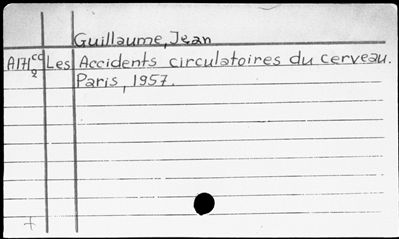 Guillaume, Jean
A171 cc Les Accidents circulatoires du cerveau.
2 Paris, 1957.